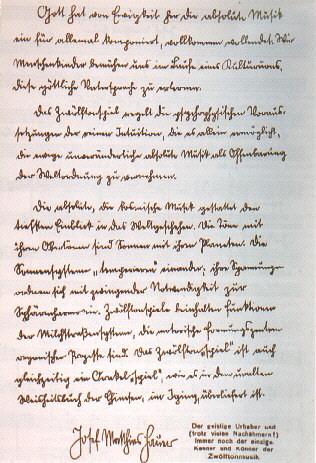 Gott hat von Ewigkeit her die absolute Musik
ein für allemal komponiert, vollkommen vollendet. Wir
Menschenkinder bemühen uns im Laufe eines Kulturäons,
diese göttliche Vatersprache zu erlernen.
Das Zwölftonspiel regelt die psychophysischen Voraus-
setzungen der reinen Intuition, die es allein ermöglicht,
die ewige unveränderliche absolute Musik als Offenbarung
der Weltordnung zu vernehmen.
Die absolute, die kosmische Musik gestattet den
tiefsten Einblick in das Weltgeschehen. Die Töne mit
ihren Obertönen sind Sonnen mit ihren Planeten. Die
Sonnensysteme "temperieren" einander: ihre Spannungen
ordnen sich mit zwingender Notwendigkeit zur
Sphärenharmonie. Zwölftonspiele beinhalten Funktionen
der Milchstraßensysteme, die motorische Formungszentren
organischer Prozesse sind. Das Zwölfton"spiel" ist auch
gleichzeitig ein Orakel"spiel", wie es in dem uralten
Weisheitsbuch der Chinesen, im Iging, überliefert ist.
Josef Matthias Hauer
Der geistige Urheber und
(trotz vielen Nachahmern!)
immer noch der einzige
Kenner und Könner der
Zwölftonmusik